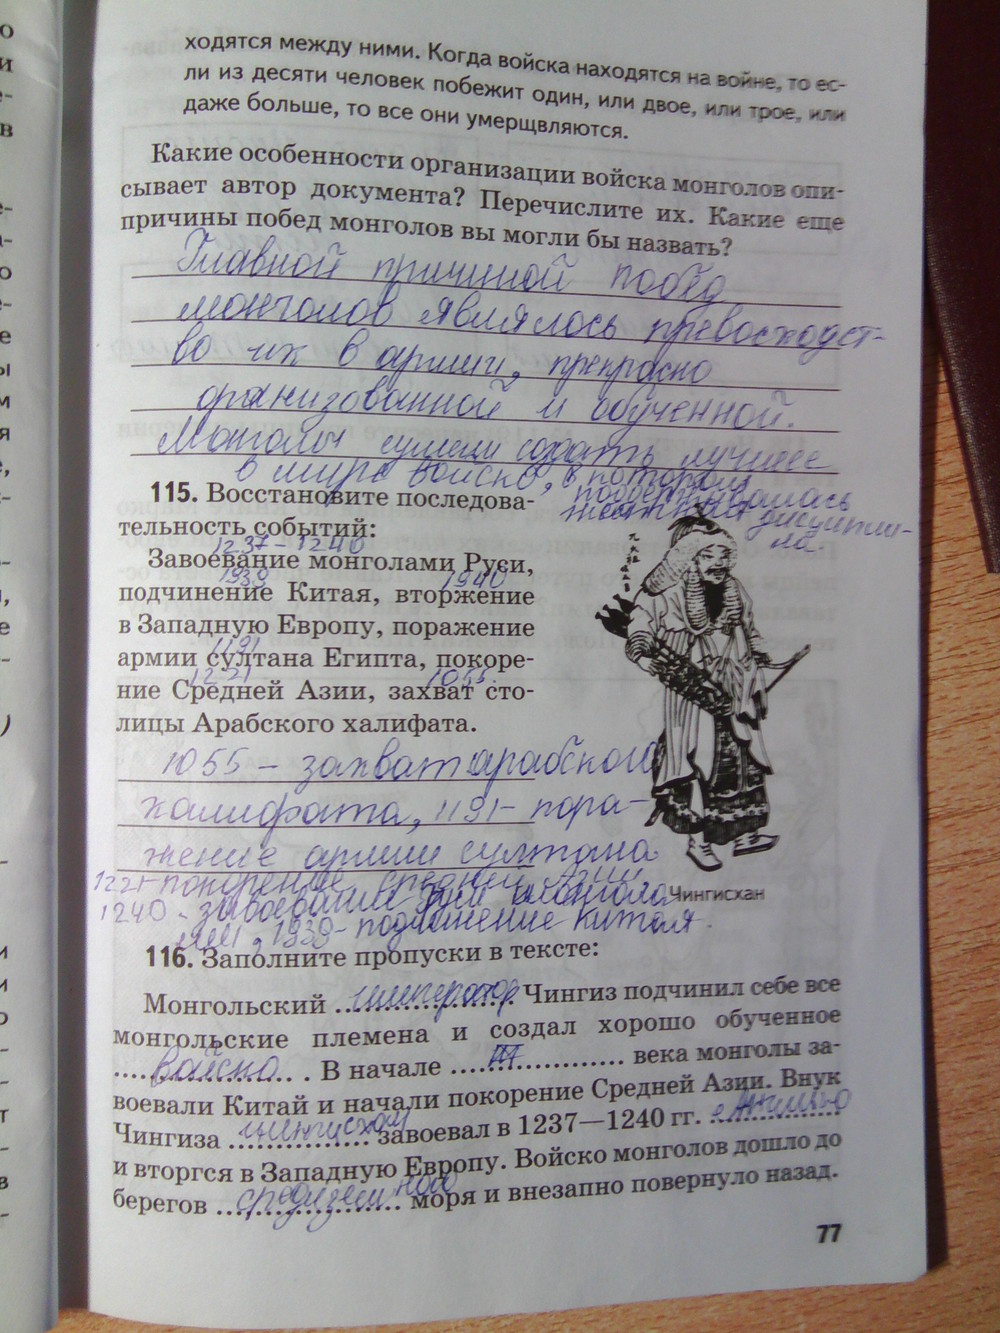 ходятся между ними. Когда войска находятся на войне, то ес-
ли из десяти человек побежит один, или двое, или трое, или
даже больше, то все они умерщвляются.
Какие особенности организации войска монголов опи-
сывает автор документа? Перечислите их. Какие еще
причины побед монголов вы могли бы назвать?
Главной причиной побед
монголов являлось превосходст-
во их в армии, прекрасно
организованной и обученной.
Монголы сумели создать лучшее
в мире войско, в котором
поддерживалась
дисципли-
на.
115. Восстановите последова-
тельность событий:
1237-1240
Завоевание монголами Руси,
1939 1940
подчинение Китая, вторжение
в Западную Европу, поражение
1191
армии султана Египта, покоре-
1221 1055
ние Средней Азии, захват сто-
лицы Арабского халифата.
1055 – захват арабского
халифата, 1191 – пора-
жение армии султана
1221 покорение средней Азии
1240 - завоевание Руси монгола
ми, 1939 - подчинение Китая.
Чингисхан
116. Заполните пропуски в тексте:
Монгольский император Чингиз подчинил себе все
монгольские племена и создал хорошо обученное
войско. В начале века монголы за-
воевали Китай и начали покорение Средней Азии. Внук
Чингиза чингисхан завоевал в 1237—1240 гг.
и вторгся в Западную Европу. Войско монголов дошло до
берегов средиземного моря и внезапно повернуло назад.
77